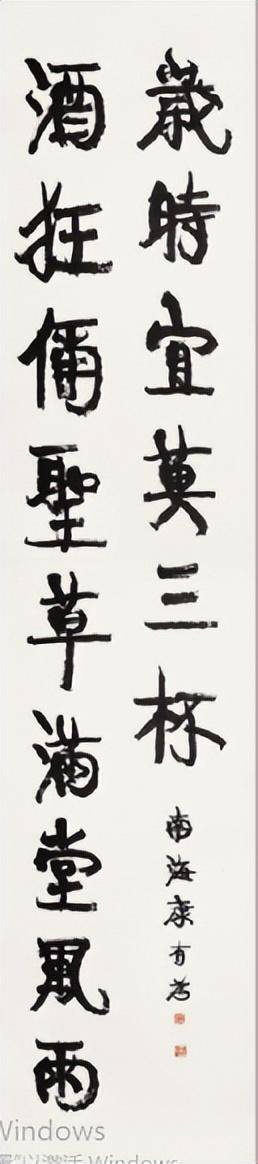 酒狂傭聖草滿堂風雨
歲時宜莫三杯
南海康有為
Windows
激活 Windows